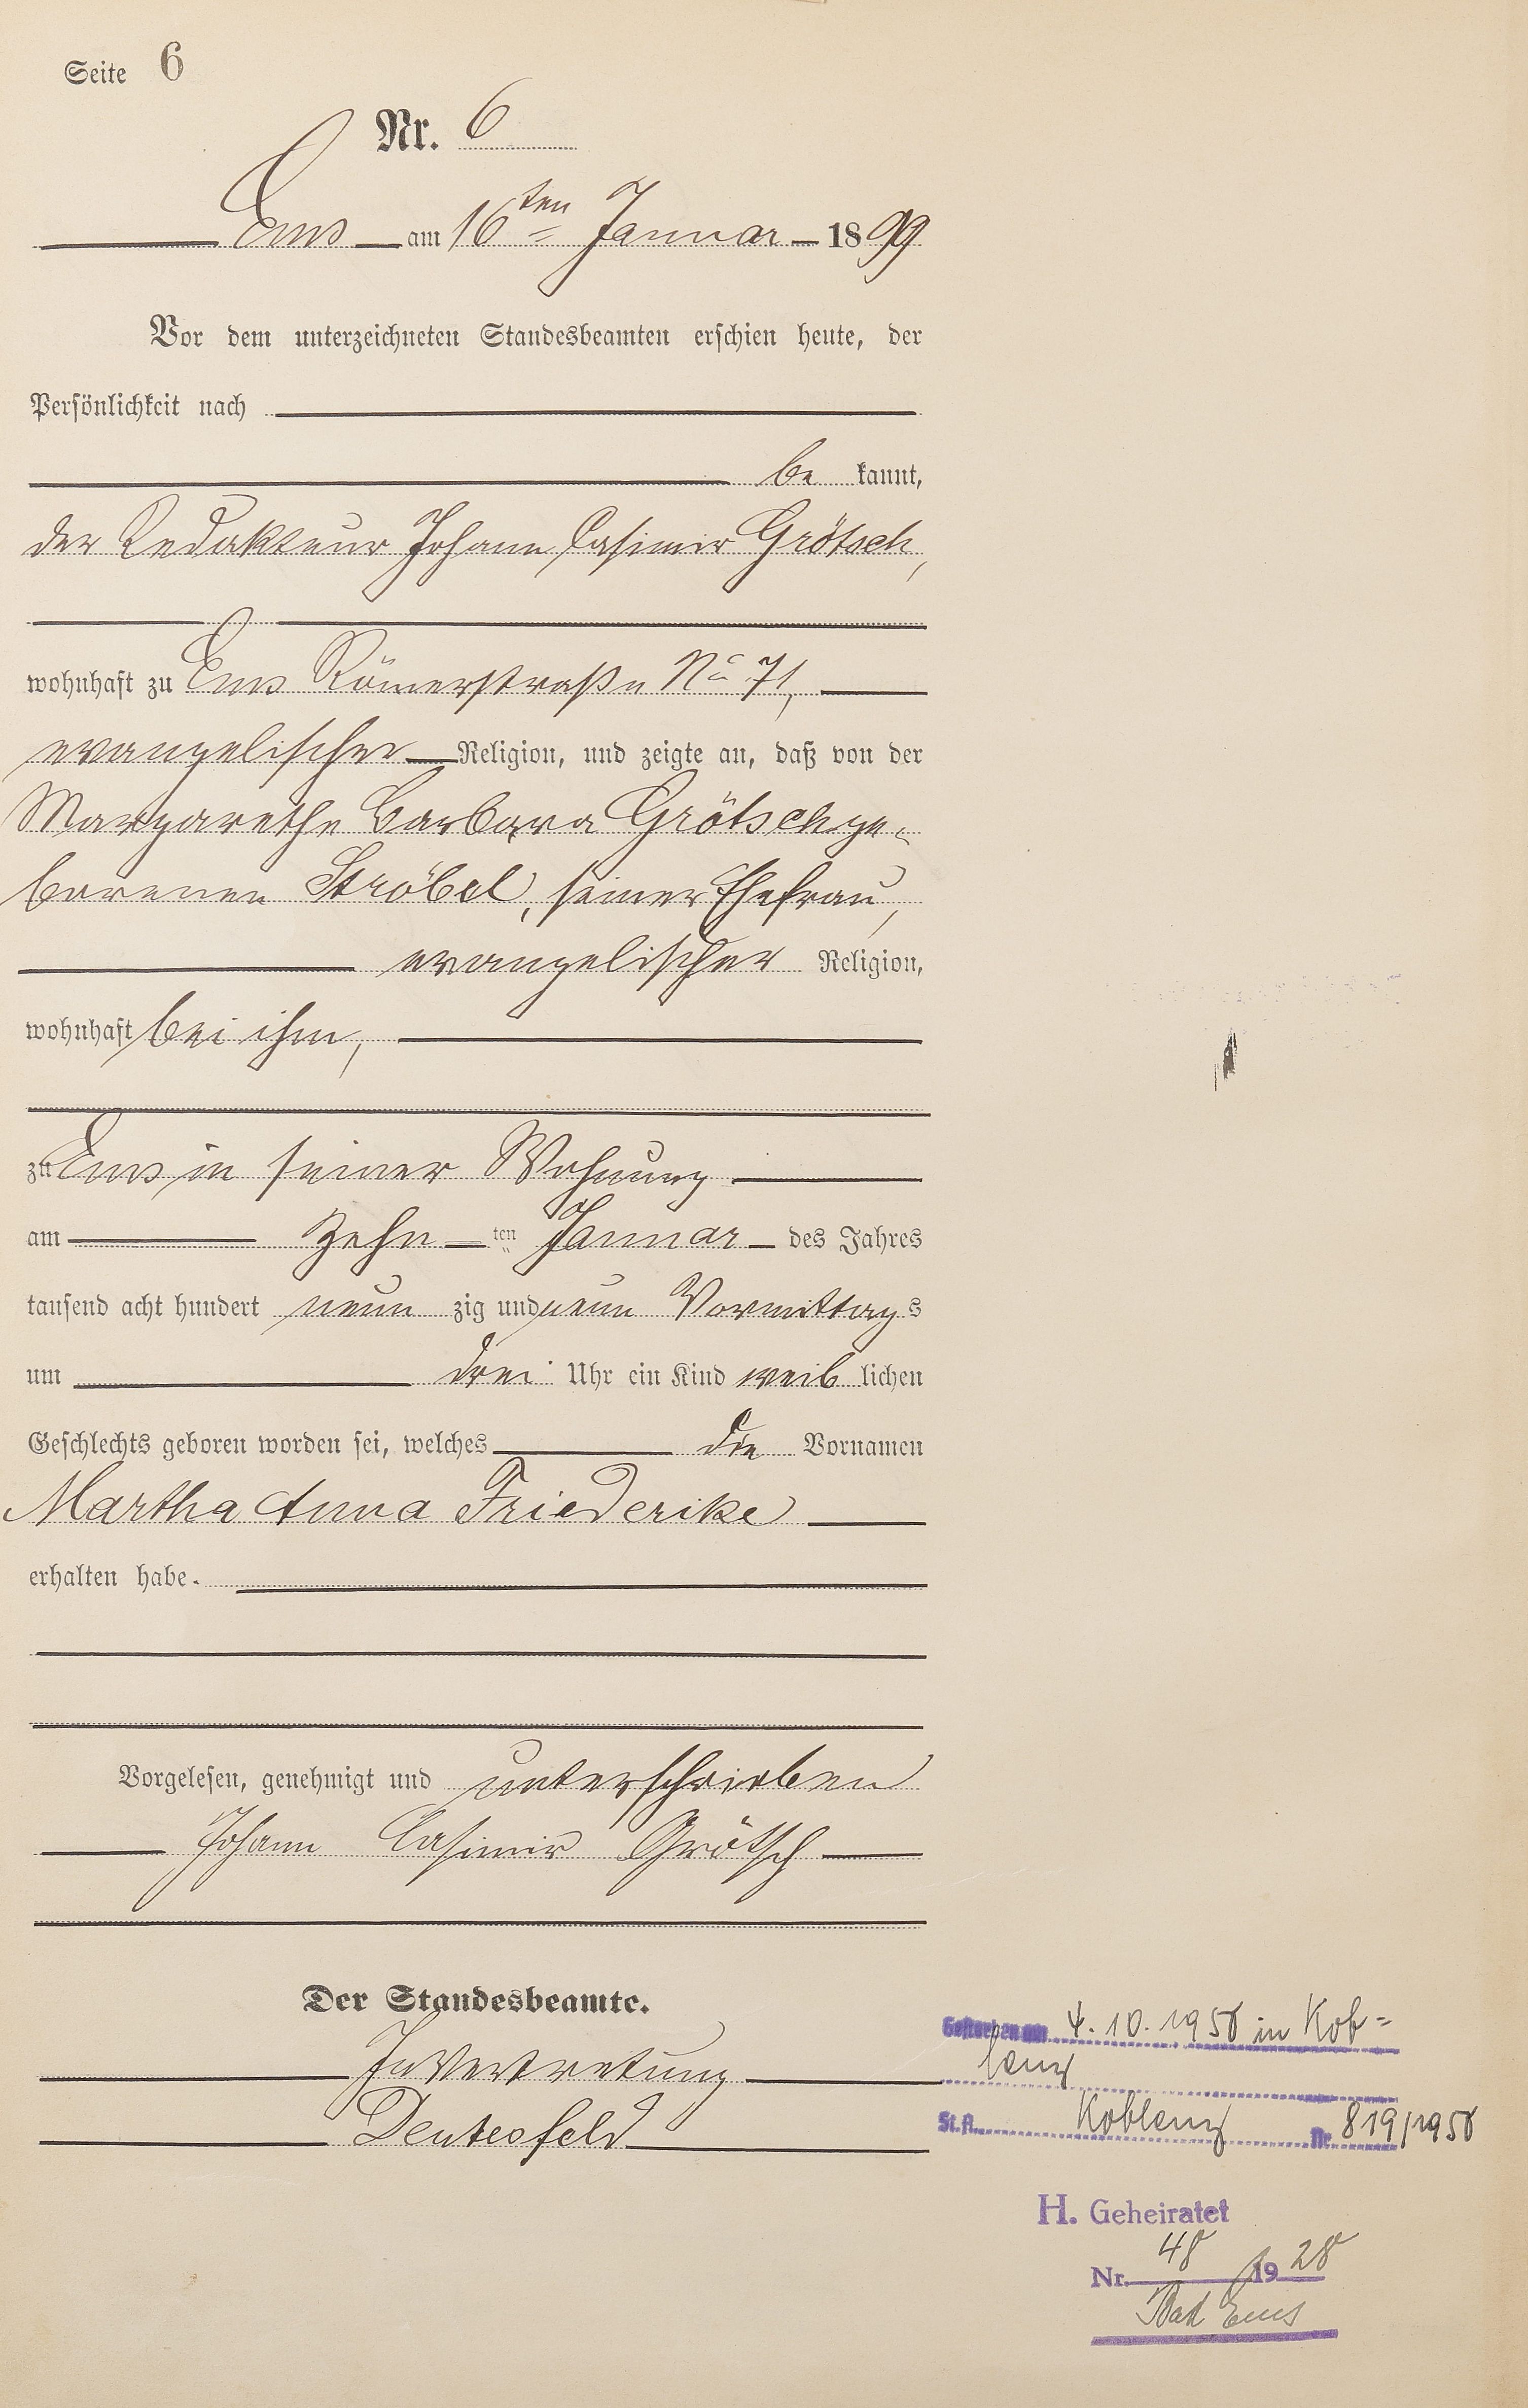 Seite 6
Nr. 6
Ems am 16ten Januar 1899
Vor dem unterzeichneten Standesbeamten erschien heute, der
Persönlichkeit nach
be kannt,
der Redakteur Johann Casimir Grötsch,
wohnhaft zu Ems Römerstraße No 71,
evangelischer Religion, und zeigte an, daß von der
Margarethe Barbara Grötsch ge-
borenen Ströbel, seiner Ehefrau,
evangelischer Religion,
wohnhaft bei ihm,
zu Ems in seiner Wohnung
am zehn ten Januar des Jahres
tausend acht hundert neun zig und neun Vormittags
um drei Uhr ein Kind weib lichen
Geschlechts geboren worden sei, welches die Vornamen
Martha Anna Friederike
erhalten habe.
Vorgelesen, genehmigt und unterschrieben
Johann Casimir Grötsch
Der Standesbeamte.
In Vertretung
Deutesfeld
Gestorben am 4.10.1958 in Kob=
lenz
St.A. Koblenz Nr. 819/1958
H. Geheiratet
Nr. 48 19 28
Bad Ems